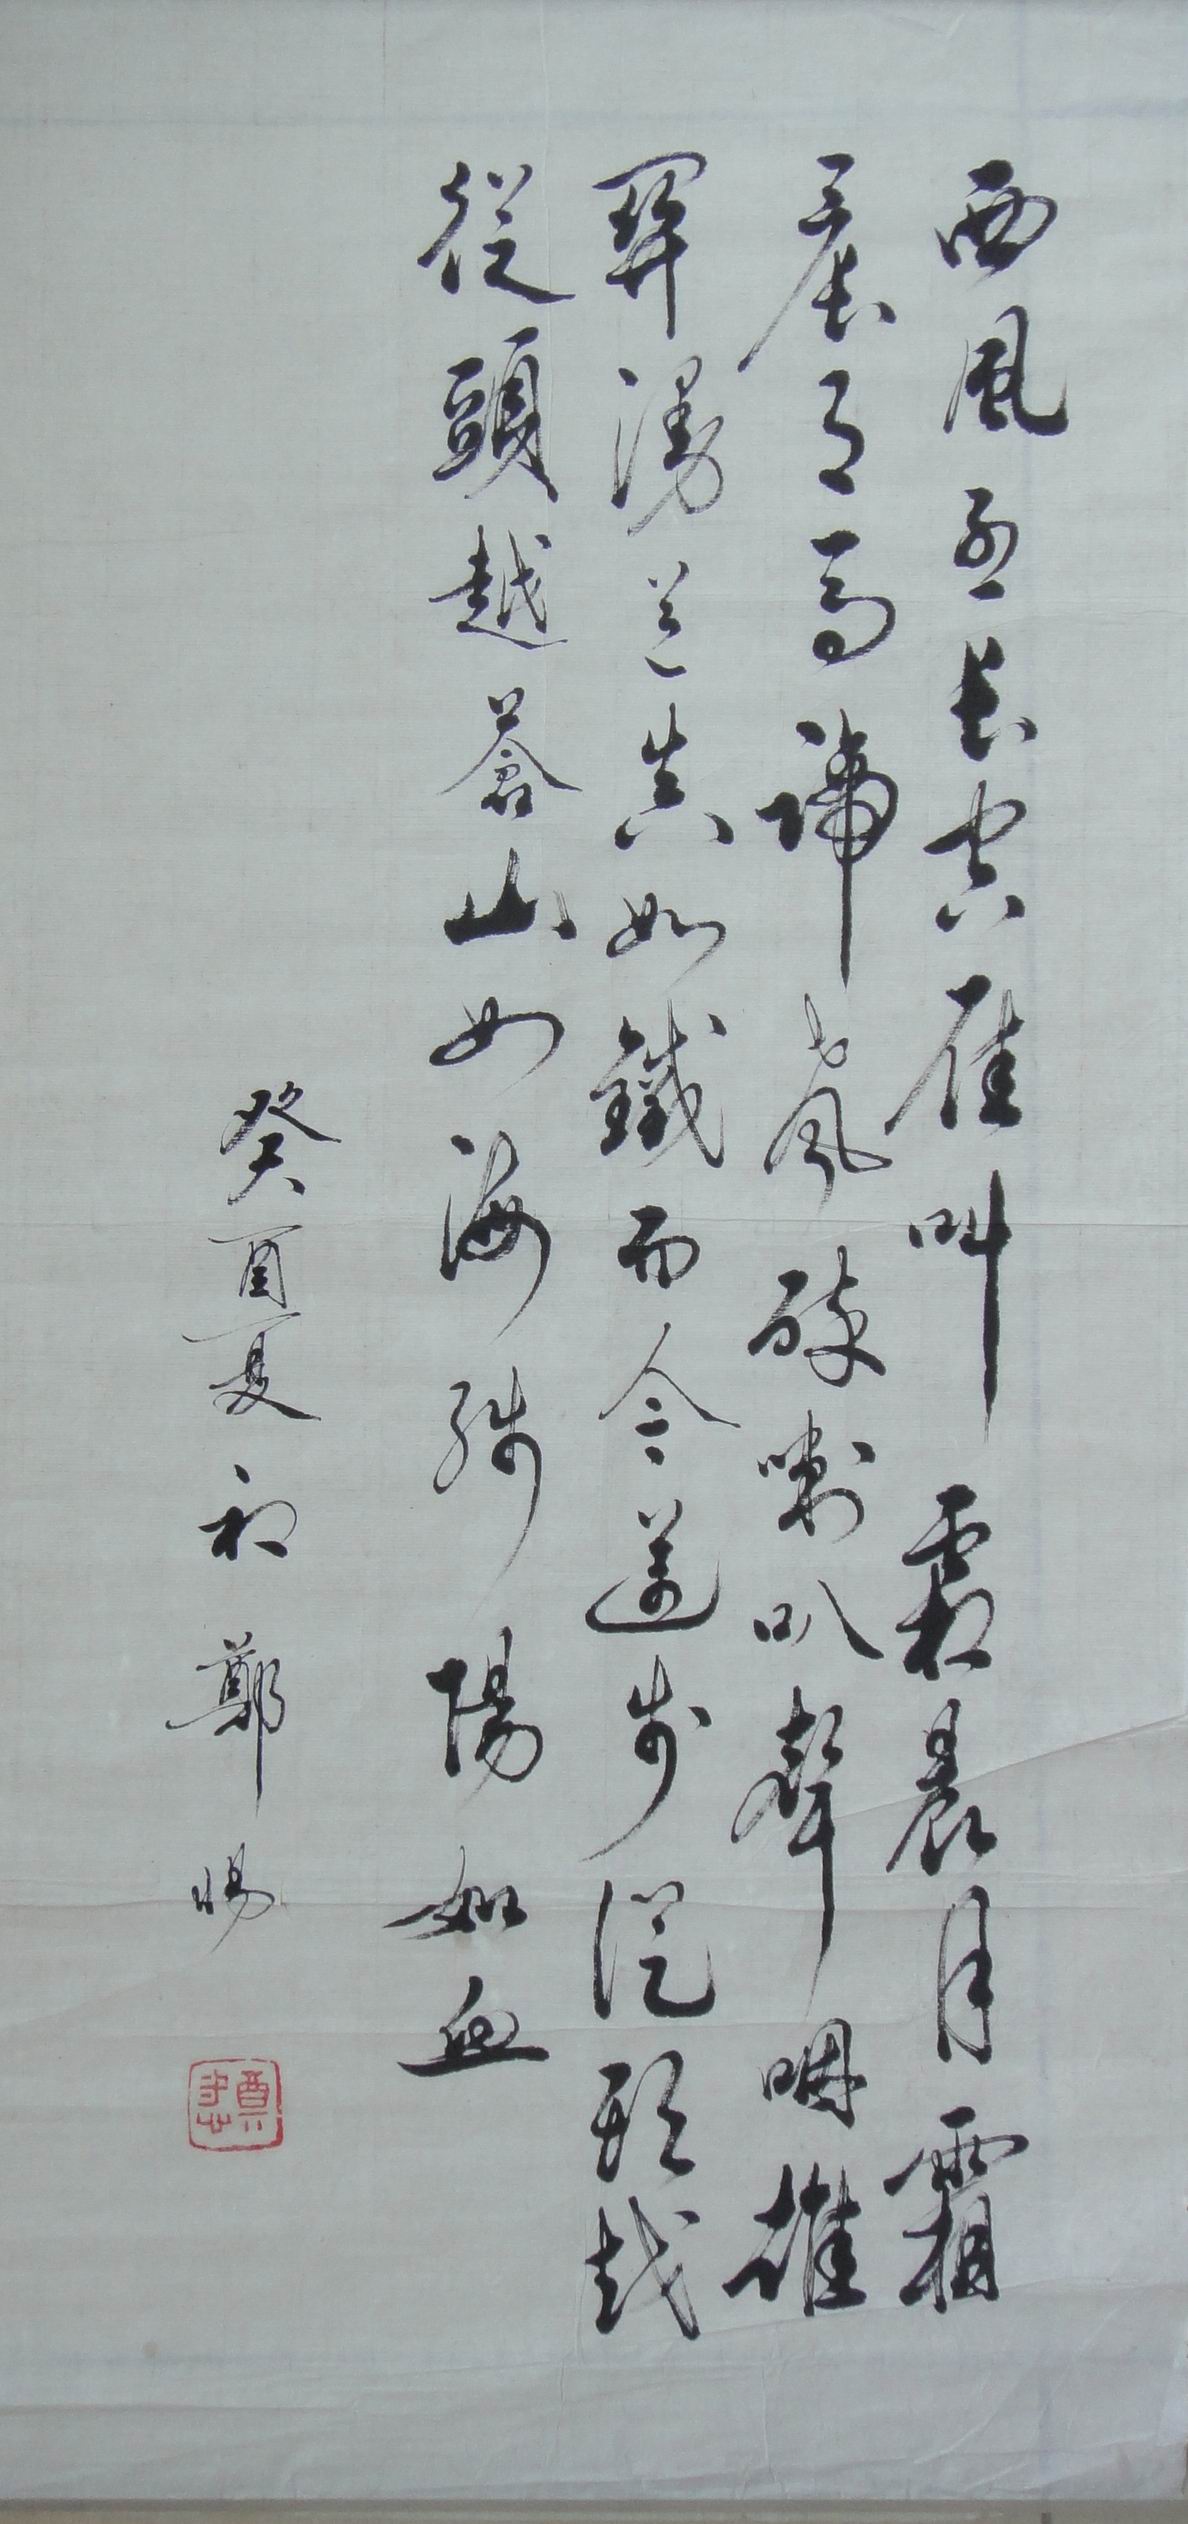 西風烈長空雁叫霜晨月霜
晨月馬蹄聲碎喇叭聲咽雄
關漫道真如鐵而今邁步從頭越
從頭越蒼山如海殘陽如血
癸酉夏初鄭惕